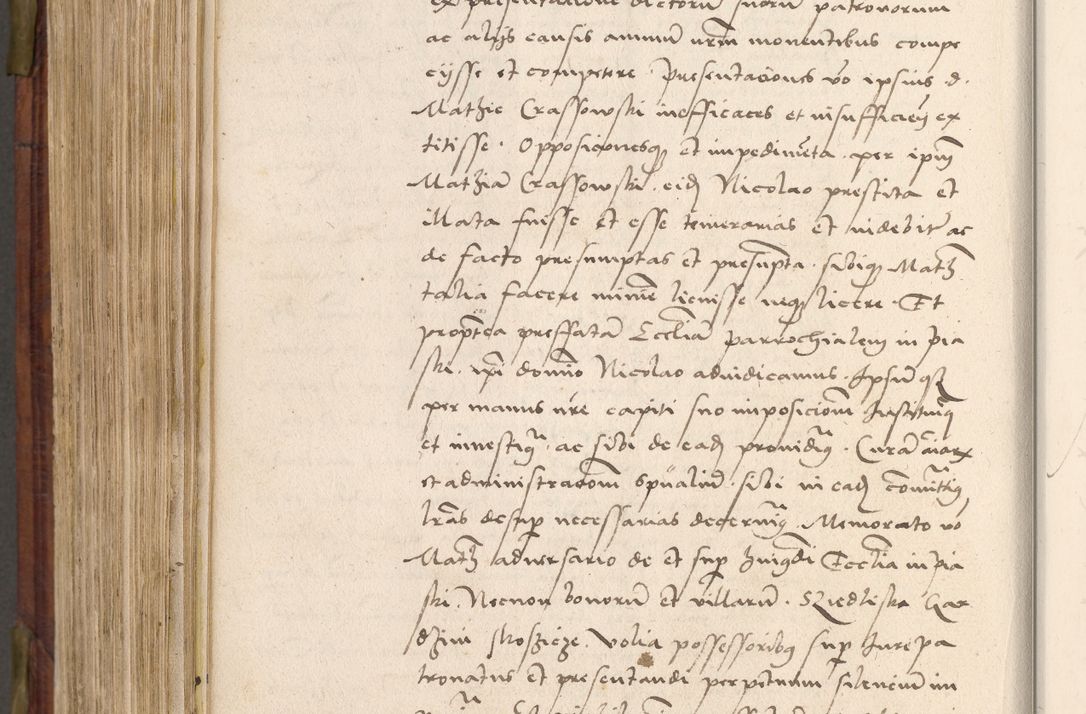 ex presentacione dictorum suorum patronorum
ac alijs causis animū nrm̄ monentibus compe
cijsse et competere. Presentaciones vo ipsius d.
Mathie Crassowski inefficaces et insufficien̄ ex
titisse. Opposicionesq et impedimēta per ipm̄
Mathiā Crassowski eid Nicolao prestita et
illata fuisse et esse temerarias et indebit ac
de facto presumptas et presūpta sibiq Math
talia facere minīe licuisse neq licere. Et
propterea preffatā Eccliā parrochialem in pia
ski. ipi domino Nicolao adiudicamus. Ipsūq
per manus nre capiti suo imposicionē Instituīq
et investiq ac sibi de ead providq. Curā aīar
et administracionē spūaliū sibi in eadꝫ comittiq
lras desup necessarias decerniq. Memorato vo
Math adversario de et sup huiqdi Ecclia in pia
ski. Necnon bonorū et villarū. Skoszicze. volia possessoribq sup Jurepa
tronatus et presentandi perpetuum silencium im